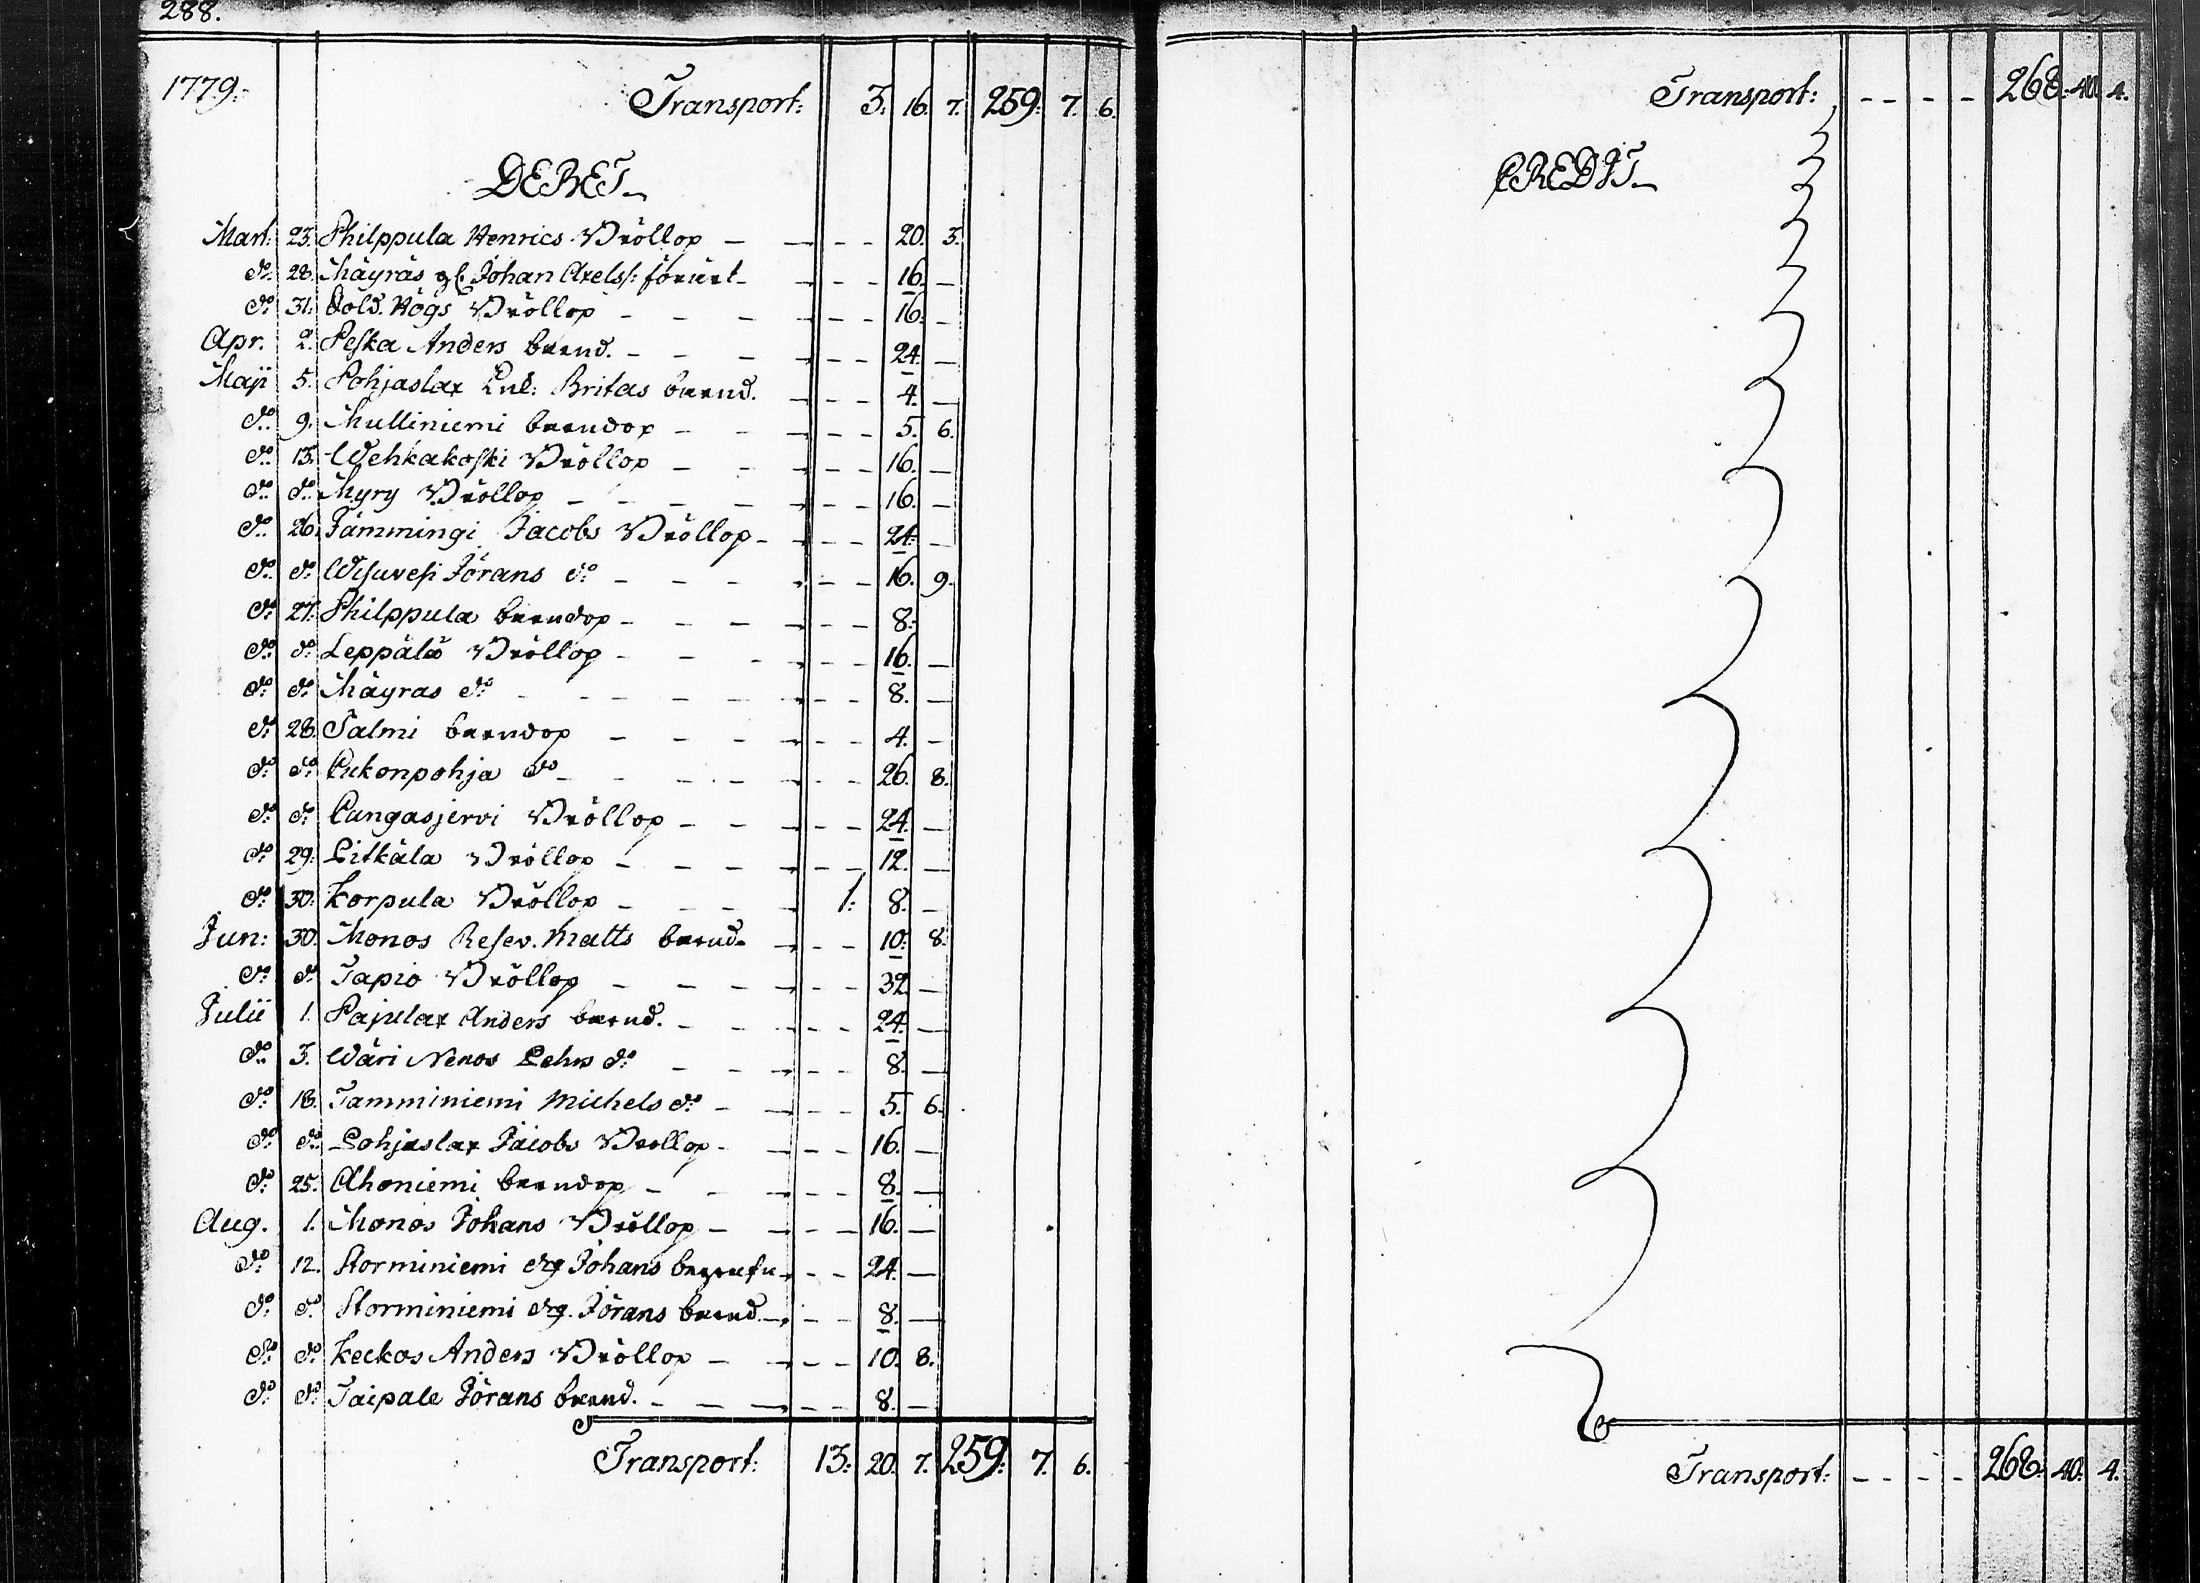 288.
1779. Transport: 3. 16. 7. 259. 7. 6.
DEBET
Mart. 23. Philppula Henrics Bröllop 20. 3.
d:o 28. Mäyräs gl. Johan Axels/: förärt 16. —
d:o 31. Sold. Högs Bröllop 16. —
Apr. 2. Peska Anders barnd. 24. —
Maji 5. Pohjaslax Enk: Britas barnd. 4. —
d:o 9. Mulliniemi barndop 5. 6.
d:o 13. Wehkakoski Bröllop 16. —
d:o d:o Myry Bröllop 16. —
d:o 26. Jämmingi Jacobs Bröllop 24. —
d:o d:o Wesuvesi Jörans d:o 16. 9.
d:o 27. Philppula barndop 8.
d:o d:o Leppälä Bröllop 16. —
d:o d:o Mäyras d:o 8. —
d:o 28. Salmi barndop 4. —
d:o d:o Pukonpohja d:o 26. 8.
d:o d:o Cangasjervi Bröllop 24. —
d:o 29. Pitkäla Bröllop 12. —
d:o 30. Korpula Bröllop 1. 8. —
Jun: 30. Monos Resev. Matts barnd. 10. 8.
d:o d:o Tapio Bröllop 32. —
Julii 1. Pajulax Anders barnd. 24. —
d:o 3. Wäri Nenos Pehrs d:o 8. —
d:o 18. Tamminiemi Michels d:o 5. 6.
d:o d:o Pohjaslax Jacobs Bröllop 16. —
d:o 25. Ahoniemi barndop 8. —
Aug. 1. Monos Johans Bröllop 16. —
d:o 12. Storminiemi Johans begrafn 24. —
d:o d:o Storminiemi Jörans barnd. 8. —
d:o d:o Keckos Anders Bröllop 10. 8.
d:o d:o Taipale Jörans barnd. 8. —
Transport: 13. 20. 7. 259. 7. 6.
Transport: 268. 40. 4.
CREDIT
Transport: 268. 40. 4.